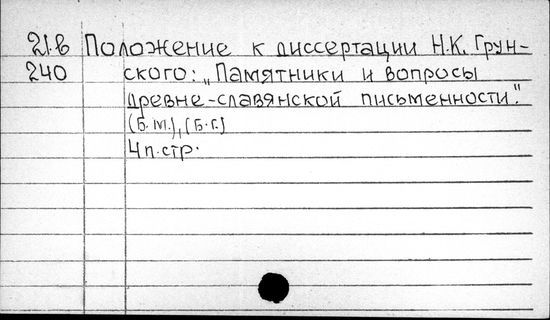 21.в Положение к диссертации Н.К. Грун-
240 ского: „Памятники и вопросы
древне-славянской письменности".
(Б.м.), (Б.г.)
4 п.стр.